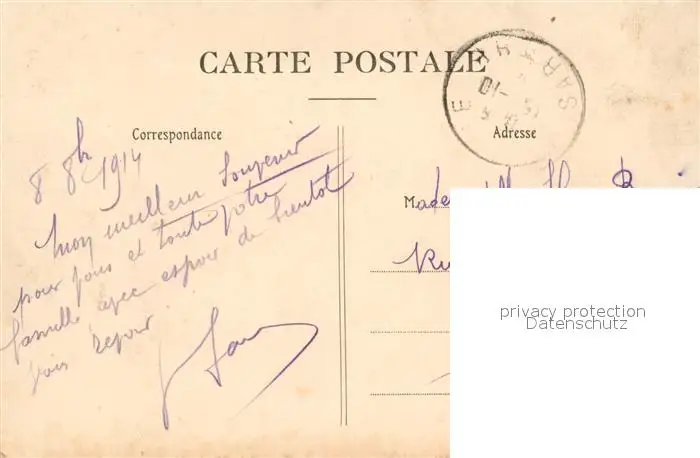 CARTE POSTALE
Correspondance
Adresse
SARTHE
8 8bre 1914
Mon meilleur Souvenir
pour vous et toute votre
famille avec espoir de bientôt
vous
M
privacy protection
Datenschutz